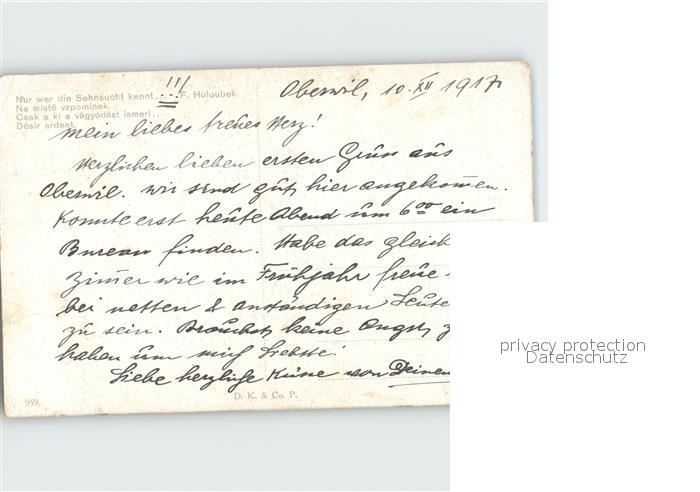 Nur wer die Sehnsucht kennt... F. Holoubek.
Na místě vzpomínek.
Csak a ki a vágyódást ismeri..
Désir ardent.
!!!
Oberwil, 10. XII 1917
Mein liebes treues Herz!
Herzlichen lieben ersten Gruss aus
Oberwil. Wir sind gut hier angekommen.
Konnte erst heute Abend um 6 00 ein
Bureau finden. Habe das gleich
Zimmer wie im Frühjahr freue
bei netten & anständigen Leute
zu sein. Brauchst keine Angst z
haben um mich Liebste!
Liebe herzliche Küsse von Deinem
959.
D. K. & Co. P.
privacy protection
Datenschutz